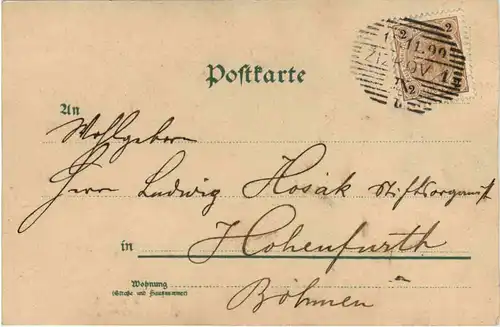 Postkarte
2 2
11.99
ŽIŽKOV 1
An
Wohlgeboren
Herr Ludwig Hosak Stiftsorganist
in Hohenfurth
Wohnung
(Straße und Hausnummer)
Böhmen